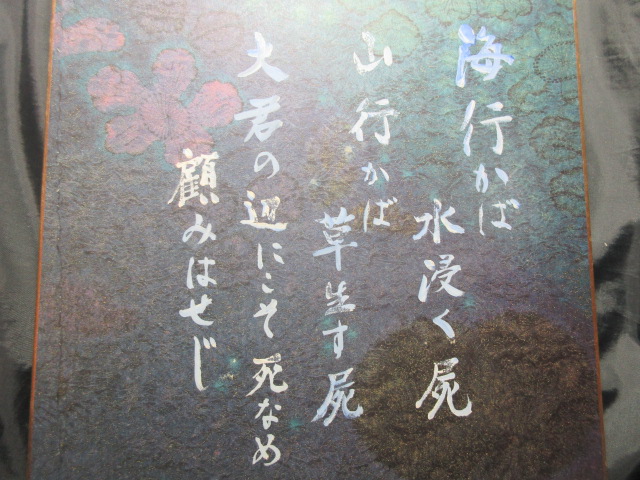 海行かば
水浸く屍
山行かば
草生す屍
大君の辺にこそ死なめ
顧みはせじ